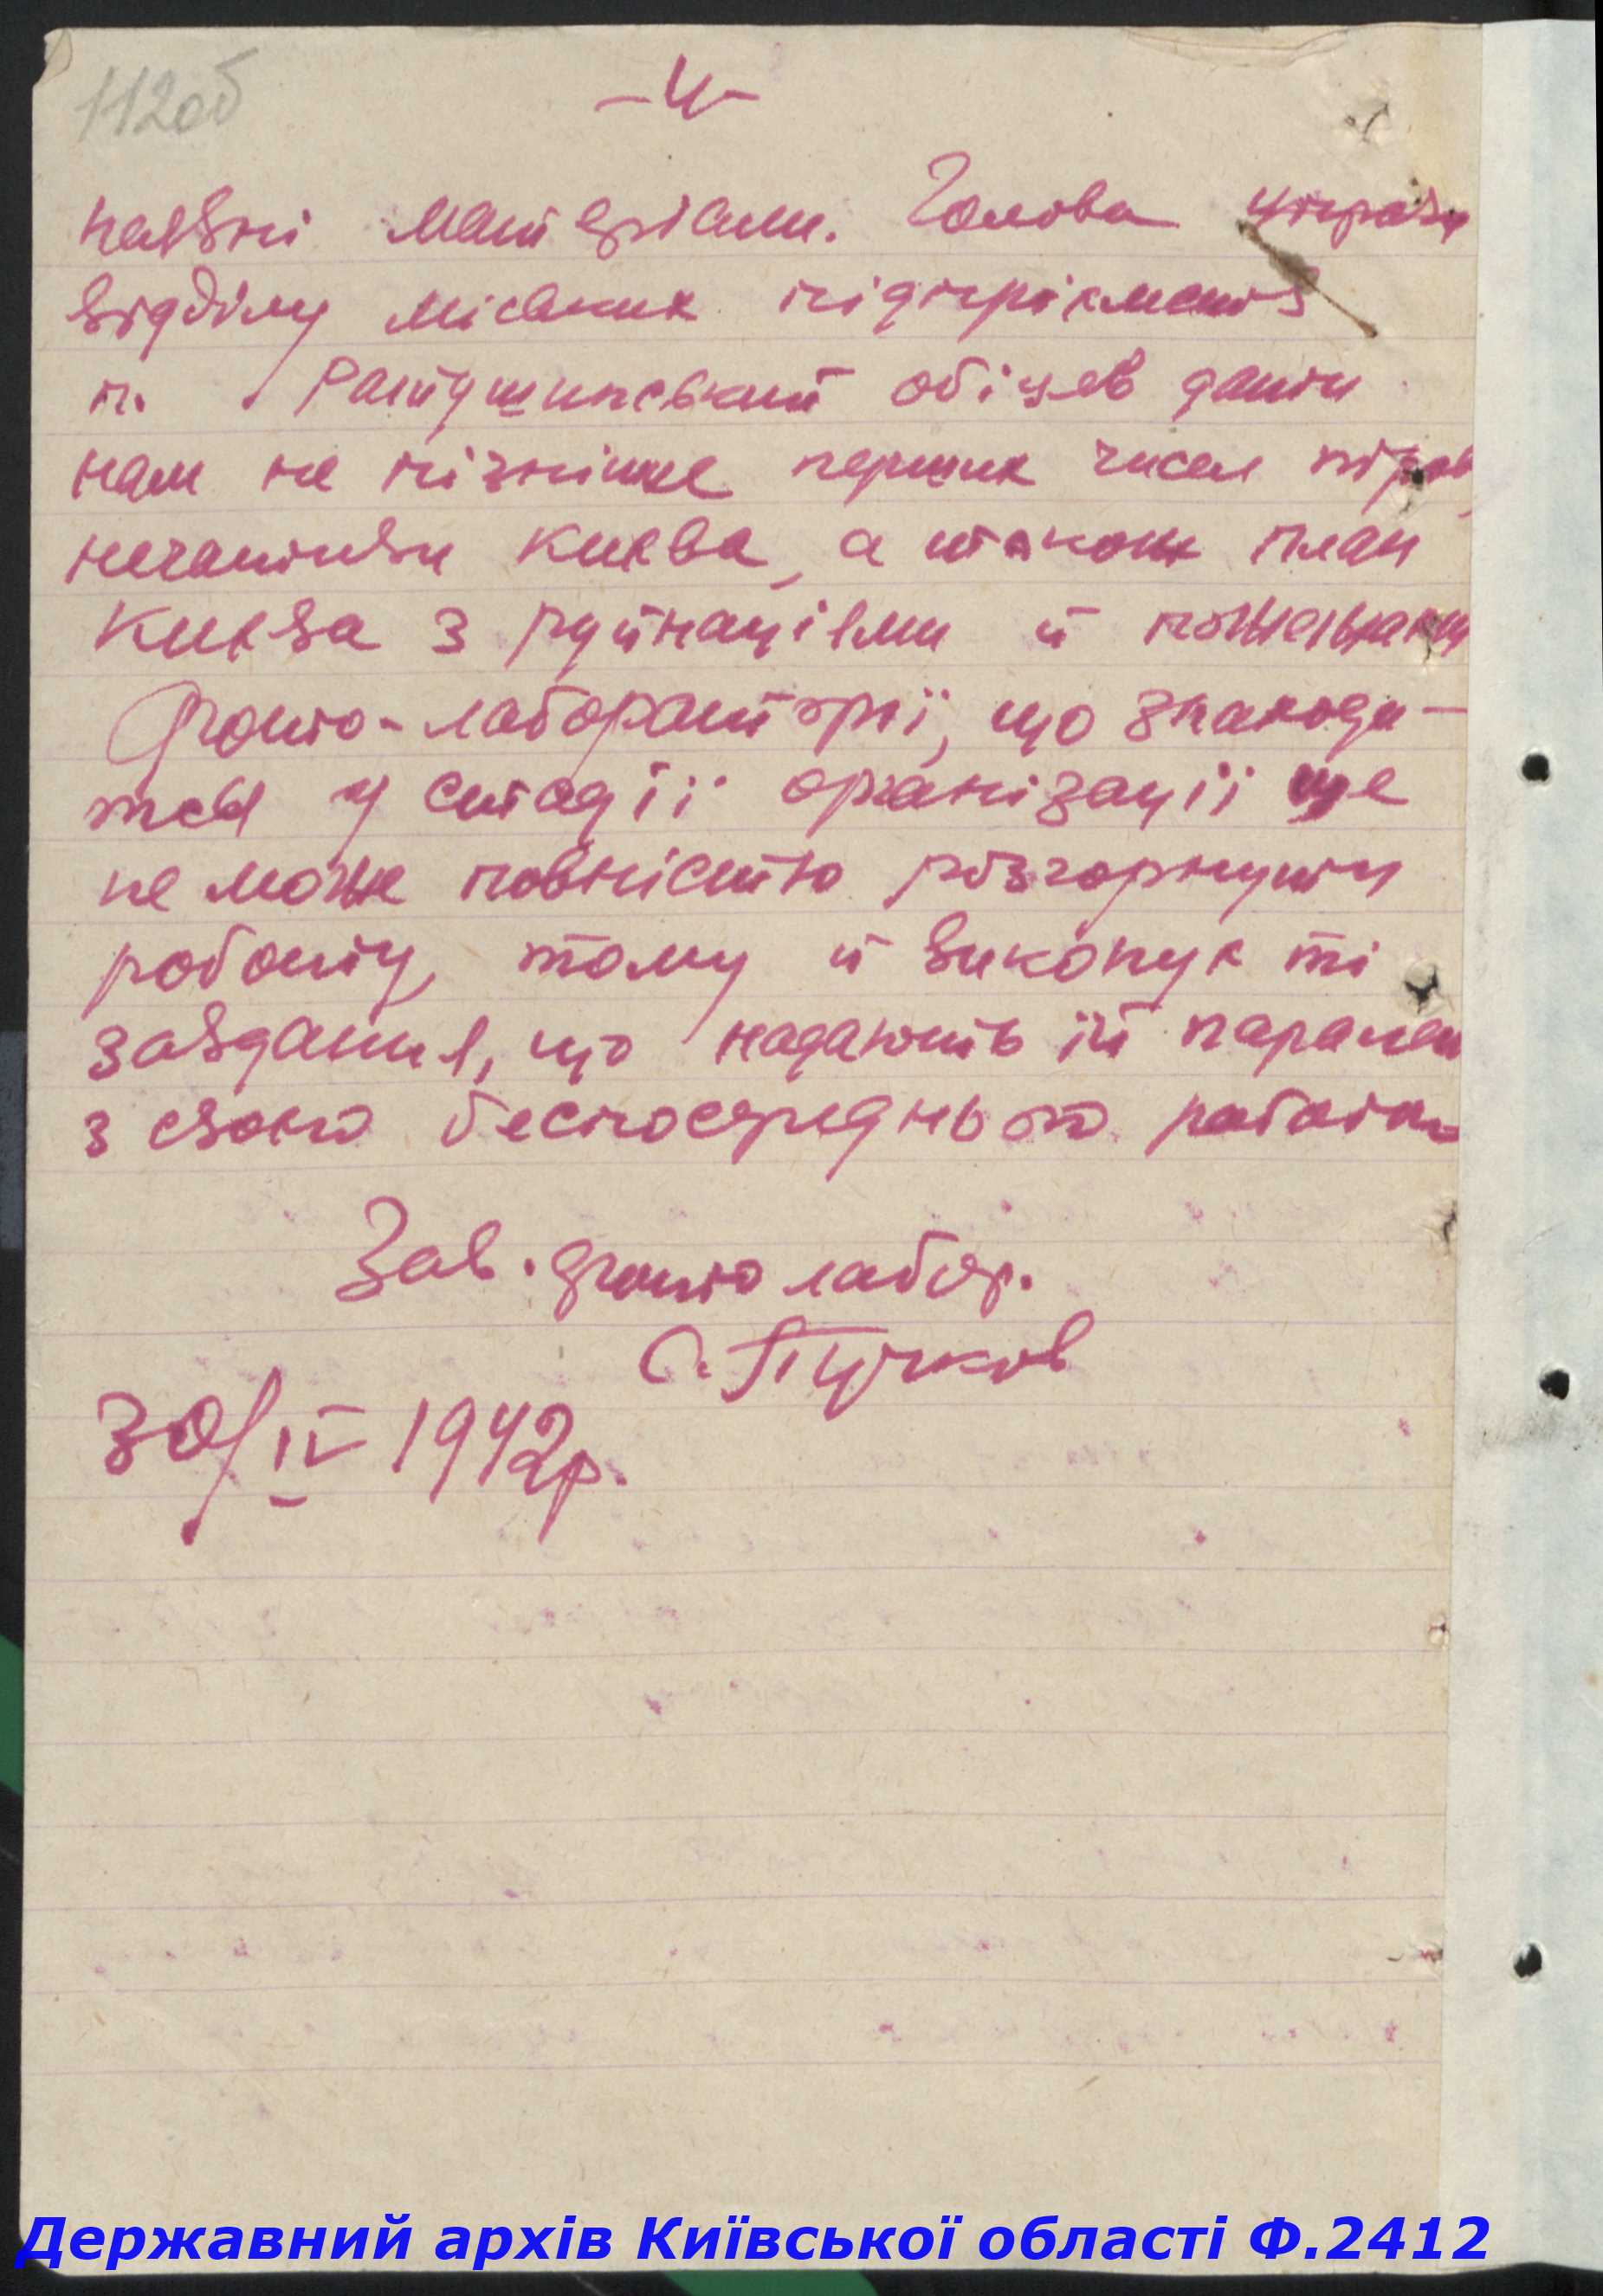 112об
-4-
наявні матеріали. Голова
відділу міських підприємств
п. обіцяв дати
нам не пізніше перших чисел
негативи Києва, а також план
Києва з руйнаціями й пожежами
Фото-лабораторії, що знаходи-
ться у стадії організації ще
не може повністю розгорнути
роботу, тому й виконує ті
завдання, що надають їй паралел
з свою беспосередньою работою
Зав. фото лабор.
С. Пучков
30/IV 1942р.
Державний архів Київської області Ф.2412